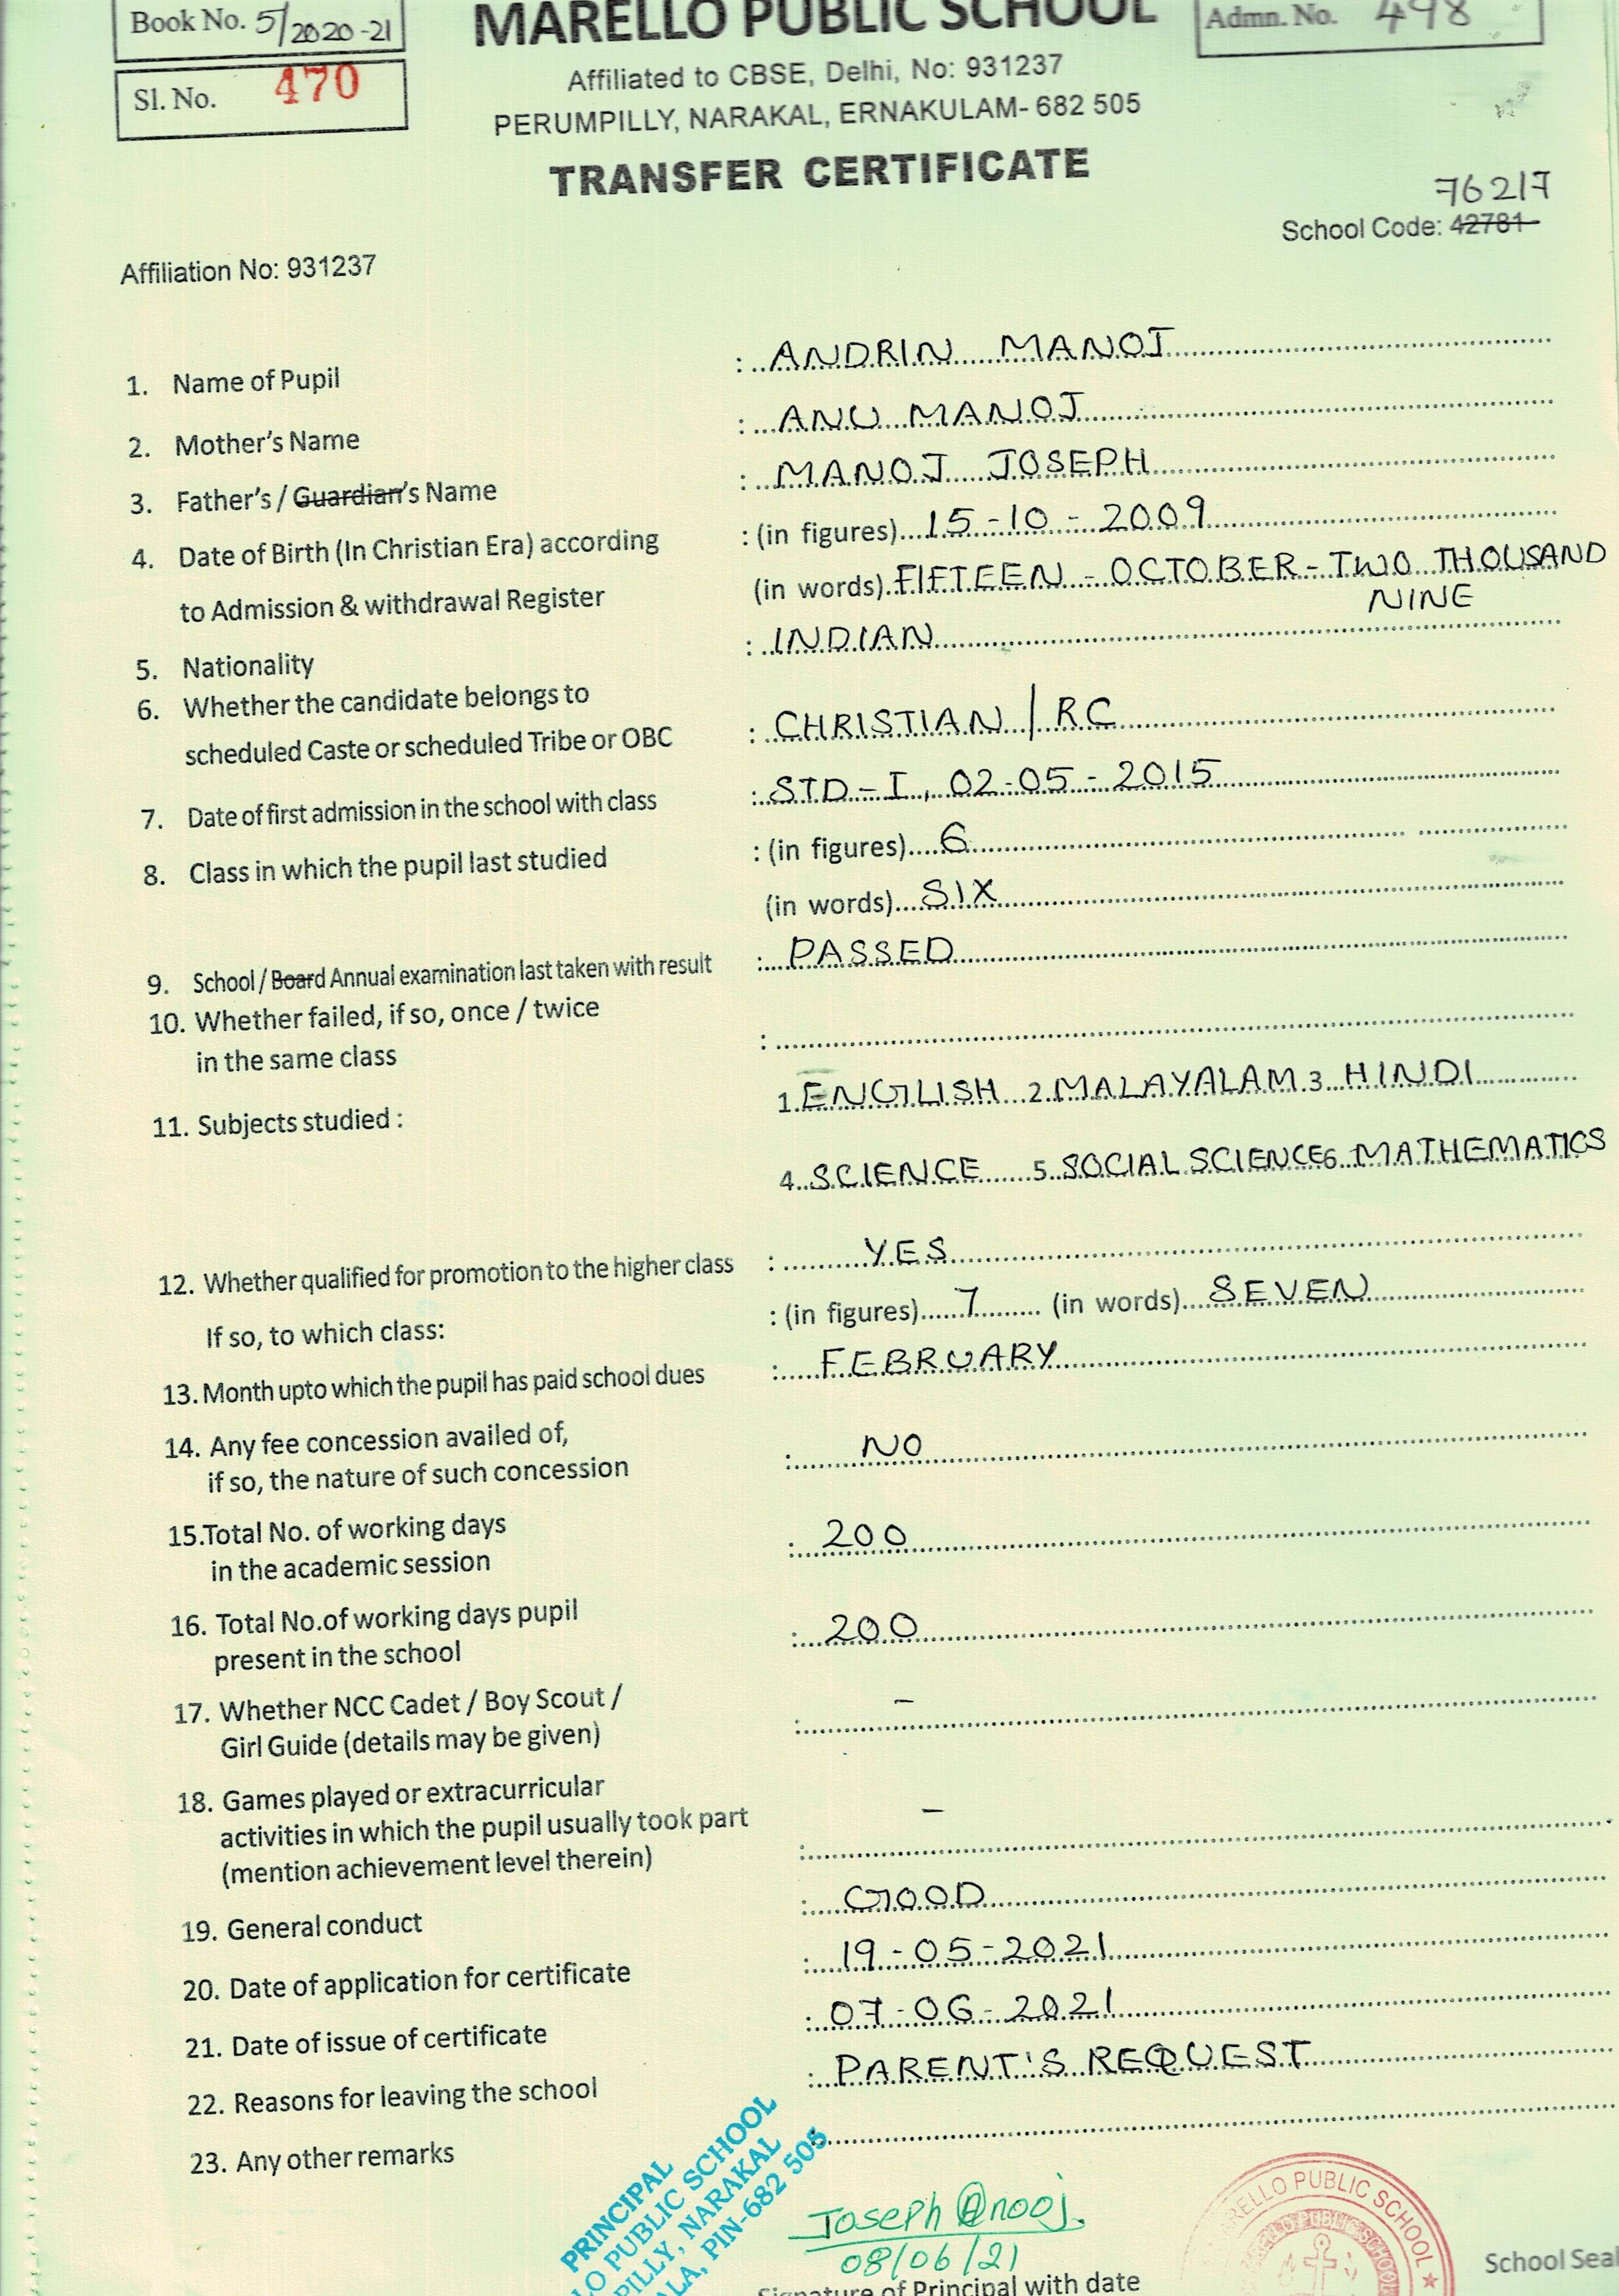 Book No. 5/2020-21
MARELLO PUBLIC SCHOOL
Admn. No. 498
Sl. No. 470
Affiliated to CBSE, Delhi, No: 931237
PERUMPILLY, NARAKAL, ERNAKULAM- 682 505
TRANSFER CERTIFICATE
76217
School Code: 42781
Affiliation No: 931237
1. Name of Pupil : ANDRIN MANOJ
2. Mother's Name : ANU MANOJ
3. Father's / Guardian's Name : MANOJ JOSEPH
4. Date of Birth (In Christian Era) according : (in figures) 15-10-2009
to Admission & withdrawal Register (in words) FIFTEEN - OCTOBER - TWO THOUSAND
NINE
5. Nationality : INDIAN
6. Whether the candidate belongs to
scheduled Caste or scheduled Tribe or OBC : CHRISTIAN / RC
7. Date of first admission in the school with class : STD - I, 02-05-2015
8. Class in which the pupil last studied : (in figures) 6
(in words) SIX
9. School / Board Annual examination last taken with result : PASSED
10. Whether failed, if so, once / twice
in the same class :
11. Subjects studied : 1. ENGLISH 2. MALAYALAM 3. HINDI
4. SCIENCE 5. SOCIAL SCIENCE 6. MATHEMATICS
12. Whether qualified for promotion to the higher class : YES
If so, to which class: : (in figures) 7 (in words) SEVEN
13. Month upto which the pupil has paid school dues : FEBRUARY
14. Any fee concession availed of,
if so, the nature of such concession : NO
15.Total No. of working days
in the academic session : 200
16. Total No.of working days pupil
present in the school : 200
17. Whether NCC Cadet / Boy Scout / -
Girl Guide (details may be given) :
18. Games played or extracurricular -
activities in which the pupil usually took part
(mention achievement level therein) :
19. General conduct : GOOD
20. Date of application for certificate : 19-05-2021
21. Date of issue of certificate : 07-06-2021
22. Reasons for leaving the school : PARENT'S REQUEST
23. Any other remarks
PRINCIPAL
LO PUBLIC SCHOOL
PILLY, NARAKAL
ALA, PIN-682 505
Joseph @nooj.
08/06/21
Signature of Principal with date
MARELLO PUBLIC SCHOOL
MARELLO PUBLIC SCHOOL
School Seal